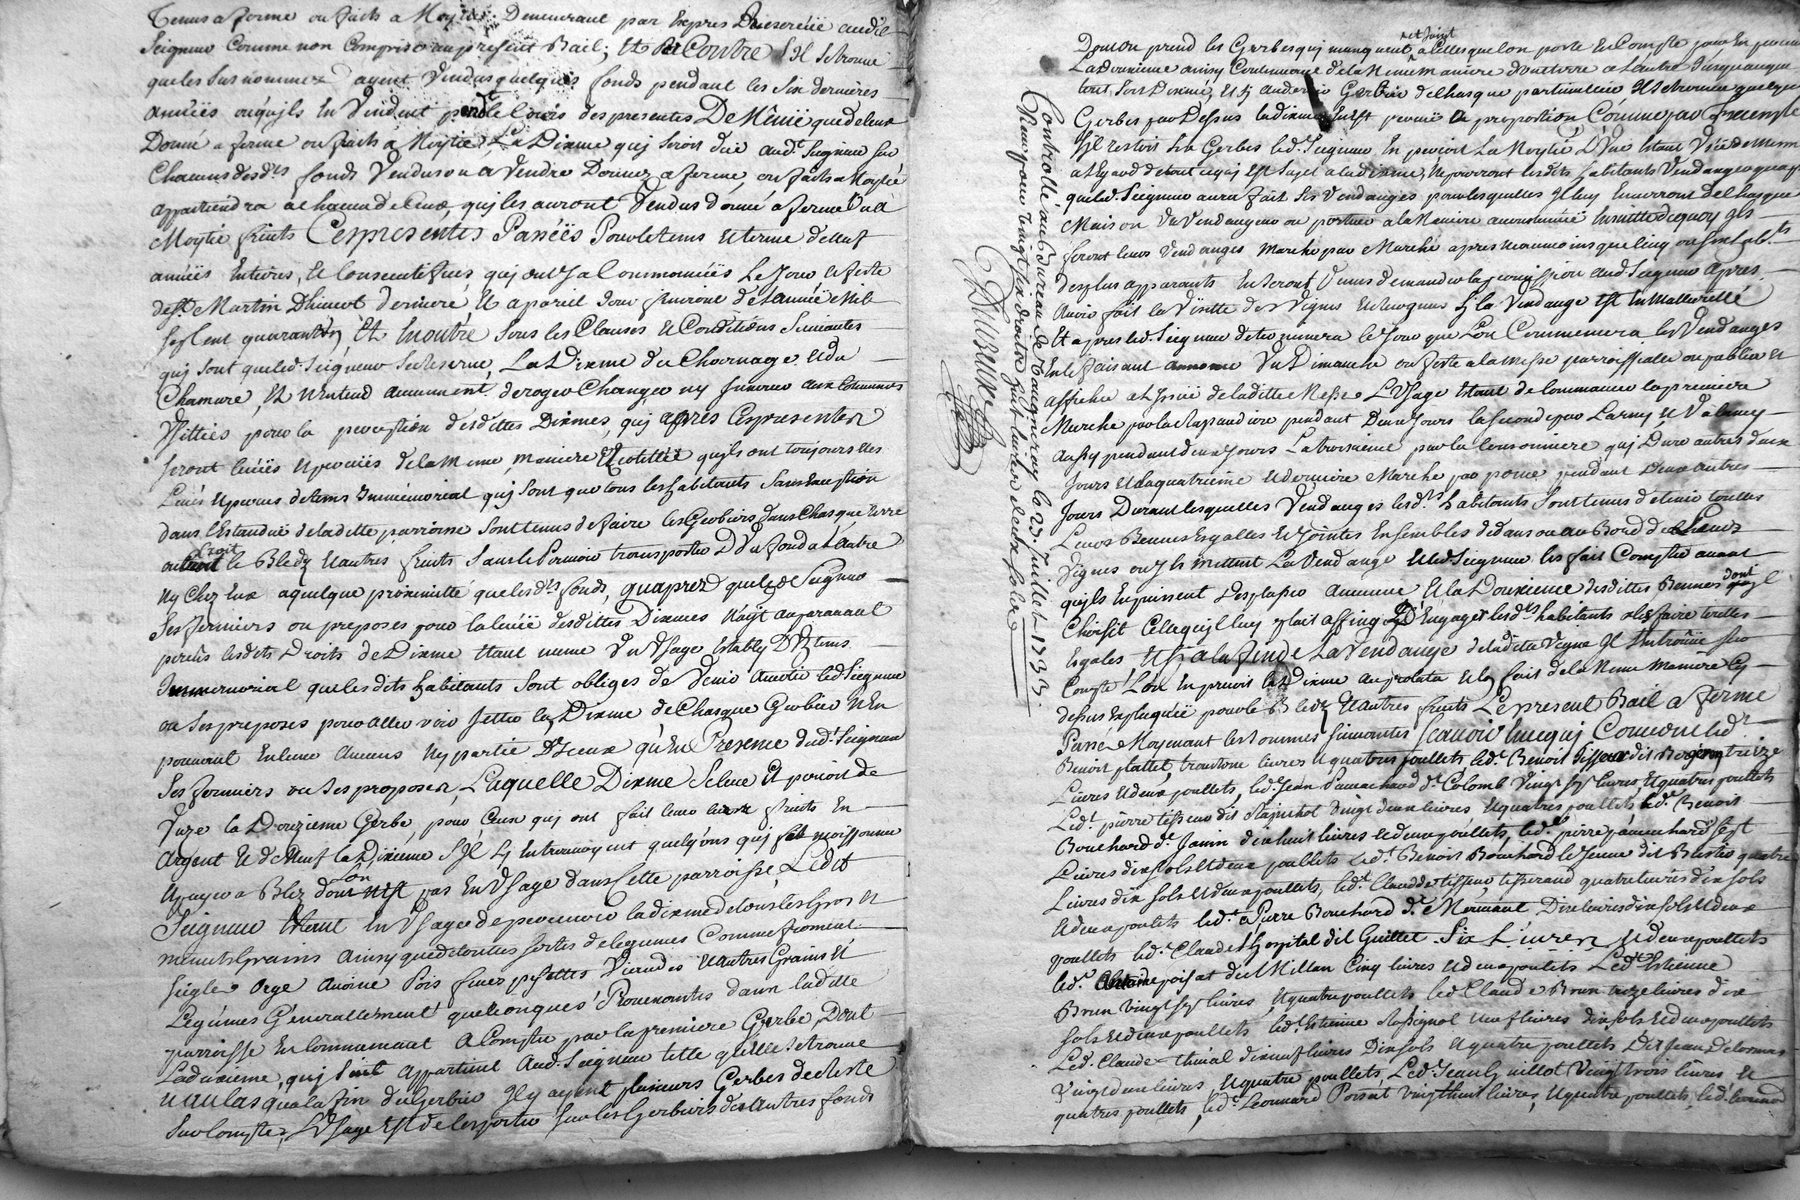 Tenus a ferme ou fruits a Moytié Demeurant par Exprès Deuserüii audit
Seigneur Comme non Compris au present Bail; Et au Contre S'il se trouve
que les susnommez ayent Vendus quelques fonds pendant les six dernieres
années ou qu'ils En Vendent pendt le Cours des presentes De Même que de leur
Donné a ferme ou fruits a Moytié, La Dixme quj seroit duë audt Seigneur sur
Chacuns desds fonds Vendus ou a Vendre Donnez a ferme, ou fruits a Moytié
appartiendra a chacun de Ceux, quj les auront Vendus donné a ferme ou a
Moytié fruits Ces presentes Passées Pour le tems et terme de Neuf
années Entieres, Et Consecutifues, quj ont Ja Commancées Le Jour et feste
de St Martin D'hiuert derniere Et a pareil Jour finiront de l'année Mil
sept cent quarante Et En outre Sous les Clauses et Conditions Suiuantes
quj sont que led. Seigneur Se Reserue, La Dixme du Charnage et du
Chanure, Et n'entend aucunement deroger Changer ny Innover aux Coutumes
Usittées pour la perception desdittes Dixmes, quj apres Ces presentes
seront leuées et perceuës de la meme maniere Et qualité qu'ils ont toujours Ete
Leués et perceus de tems Immémorial quj sont que tous les habitants sans Exception
dans l'Estenduë de laditte parroisse sont tenus de faire les Gerbiers dans Chasque terre
ou Croit le Bled et autres fruits Sans le Pouuoir transporter D'Un fond a L'autre
Ny Chez Eux a quelque proximitté que lesds fonds, quapres que led Seigneur
Ses fermiers ou preposes pour la leuée desdittes Dixmes N'ayt auparauant
perceus lesdits Droits de Dixme Etant meme Un Usage Establÿ D'Un tems
Immemorial que lesdits habitants sont obliges de Venir Auertir led Seigneur
ou Ses preposes pour aller voir Jetter la Dixme de Chasque Gerbier N'En
pouuant Enleuer Aucuns Ny partie D'Iceux qu'En Presence dudt Seigneur
Ses fermiers ou Ses preposez, Laquelle Dixme Se leue Et perçoit de
Unze la Douzieme Gerbe, pour Ceux quj ont fait leur leurs fruits En
Argent Et de Neuf la Dixiéme S'Il s'y En trouvoyent quelqu'ons quj fait moissonner
Et payer a Blez dont l'on N'est pas En Usage dans Cette parroisse, Ledit
Seigneur Etant En Usage de perceuoir la dixme de tous les Gros et
menuts Grains ainsy que de toutes sortes de legumes Comme froment
seigle Orge Auoine Pois feues pesettes Viandes et autres Grains Et
Legumes Generallement quelconques Prouenantes dans laditte
parroisse En Commancant a Compter par la premiere Gerbe, Dont
La douzieme, quj suit appartient Aud. Seigneur telle qu'Elle Se trouue
Et au Cas qu'a la fin du Gerbier Il y ayent plusieurs Gerbes de Reste
Sur Compter, L'Usage Est de les porter sur les Gerbiers des autres fonds
Controllé au Bureau de Tauignieu le 27 Juillet 1733.
Reçu pour Vingt six droits huit liures seize sols
Duruure
D'ou on prend les Gerbes quj manquent et Joint a Celles que l'on porte En Compte pour En prendre
La douzieme ainsy Continuant de la Même maniere d'une terre a L'autre Jusqu'auque
tout Soit Dixmé, Et sy au dernier Gerbier de Chasque particulier, Il se trouue quelque
Gerbes par Dessus la dixme s'Est perceuë En proportion Comme par Exemple
s'Il restoit six Gerbes led. Seigneur En perçoit La Moytié D'Une Etant Usé de meme
a L'Egard de tout ce quj Est Sujet a la dixme, Ne pourront lesdits habitants Vendanger auque
que led. Seigneur aura fait Ses Vendanges pour lesquelles Il luy Enuerront de Chasque
Maison Un Vendangeur ou porteur a la Maniere accoutumée Ensuitte dequoy Ils
feront leurs Vendanges Marche par Marche apres Neanmoins que Cinq ou Six habts
des plus apparants En seront Venus demander la permission aud Seigneur Apres
Auoir fait la Visitte des Vignes Et Recognus sy la Vendange Est En Maturitté
Et apres led. Seigneur determinera le Jour que L'on Commencera les Vendanges
En le faisant annoncer Un Dimanche ou feste a la Messe parroissialle ou publier et
afficher a L'Issuë de laditte Messe L'Usage Etant de Commancer la premiere
Marche par la Rapaudiere pendant Deux Jours la seconde par Larny et Valency
Aussy pendant deux Jours La troisieme par la Censonniere quj Dure autres deux
Jours Et la quatrieme et derniere Marche par pome pendant Deux autres
Jours Durant lesquelles Vendanges lesds habitants sont tenus de tenir toutes
Leurs Bennes Egalles Et Jointes Ensembles dedans ou au Bord de leurs
Vignes ou Ils mettent La Vendange Et led Seigneur les fait Compter auant
qu'ils En puissent Desplacer Aucune Et la Douzieme desdittes Bennes dont Il
Choisit Celle qu'Il luy plait affin D'Engager lesds habitants a les faire toutes
Egales, Et Sy a la fin de La Vendange de laditte Vigne Il s'En trouue sur
Compte L'on En perçoit la Dixme au prorata Et Il se fait de la Meme Maniere Cy
dessus Expliquée pour le Bled Et autres fruits Le present Bail a ferme
Passé Moyenant les sommes Suiuantes scauoir Chacun Comme ledt
Benoit plattet, trentune liures Et quatres poullets led. Benoit tisseur dit Bergeon treize
Liures Et deux poullets, led. Jean Panachaud dt Colomb Vingt sept liures, Et quatres poullets
Led. pierre tisseur dit Rapichol Vingt deux liures Et quatres poullets led. Benoit
Bouchard dt Janin dix huit liures Et deux poullets, led. pierre panachard sept
Liures dix sols Et deux poullets ledt Benoit Bouchard le Jeune dit Bustio quatre
Liures dix sols Et deux poullets, led. Claude tisseur tisserand quatre liures dix sols
Et deux poulets led. Pierre Bouchard dt Mermant Dix liures dix sols Et deux
poullets led. Claude L'hospital dit Guillet Six Liures, Et deux poullets
led. Antoine poisat dit Millan Cinq liures Et deux poulets Led. Estienne
Brun Vingt sept liures, Et quatre poullets led Claude Brun treize liures dix
sols Et deux poullets led. Estienne Rossignol Neuf liures dix sols Et deux poullets
Led. Claude thiual dix neuf liures Dix sols Et quatre poullets Dit Jean Delormas
Vingt deux liures Et quatre poullets Led Jean Guillot Vingt trois liures Et
quatres poullets, led. Leonnard Poisat Vingt huit liures, Et quatre poullets, led. Leonnard